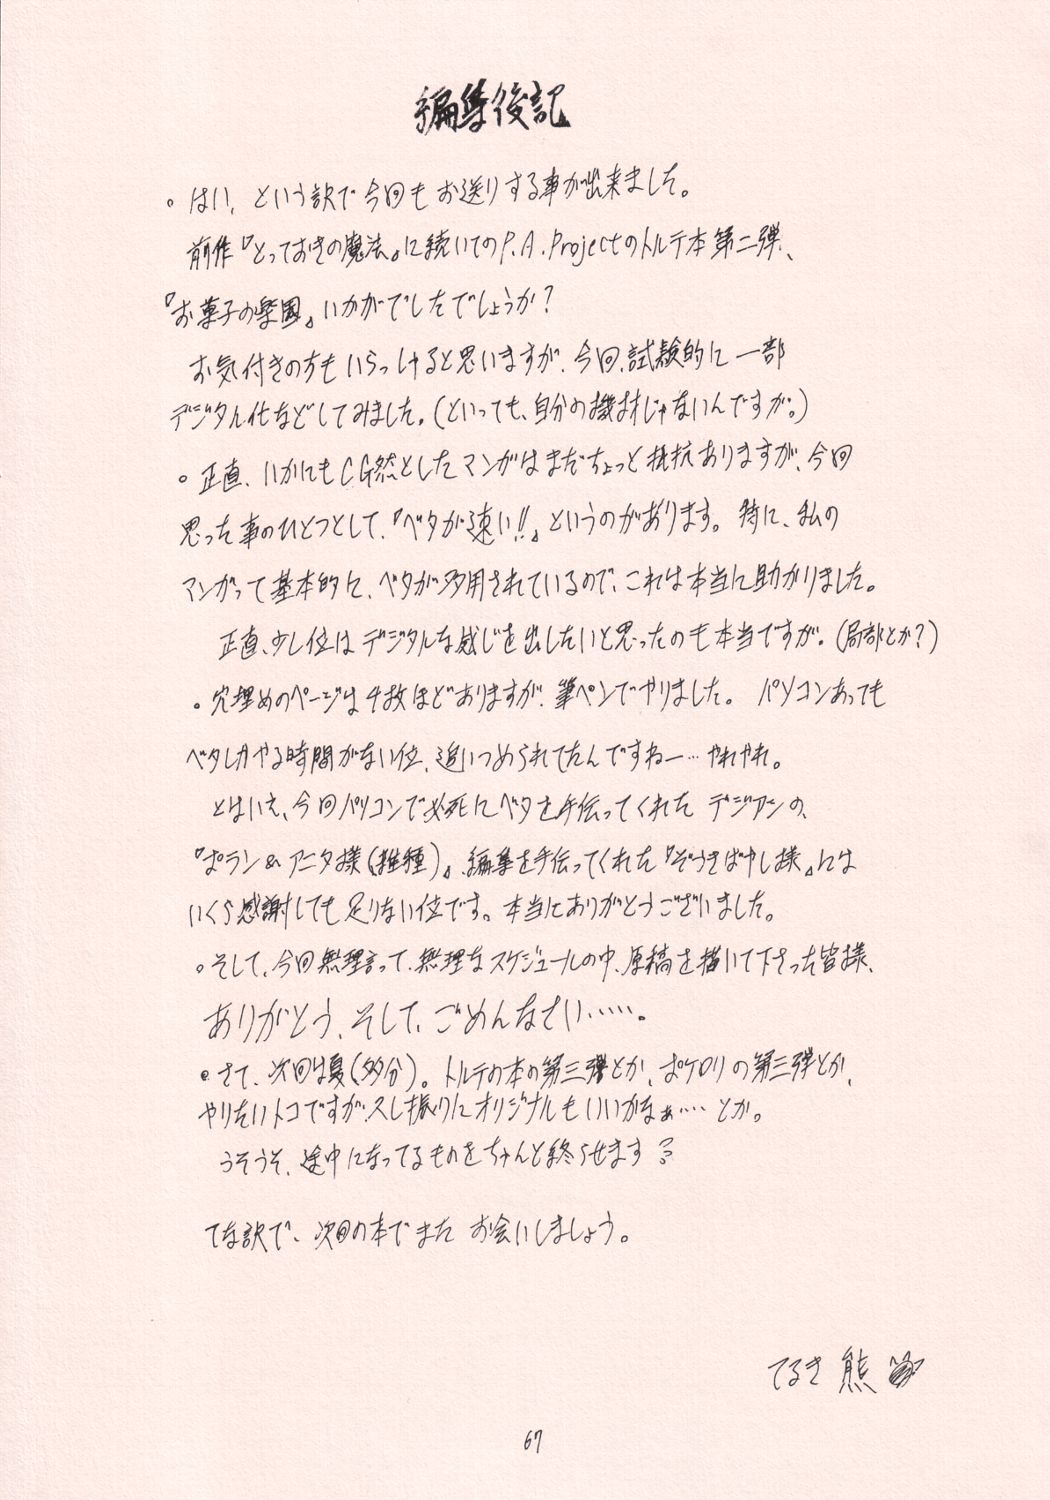 編集後記
。はい、という訳で今回もお送りする事が出来ました。
前作『とっておきの魔法』に続いてのP.A.Projectのトルテ本第二弾、
『お菓子の楽園』いかがでしたでしょうか？
お気付きの方もいらっしゃると思いますが、今回、試験的に一部
デジタル化などしてみました。(といっても、自分の機材じゃないんですが。)
。正直、いかにもCG然としたマンガはまだちょっと抵抗ありますが、今回
思った事のひとつとして、『ベタが速い!!』というのがあります。特に、私の
マンガって基本的に、ベタが多用されているので、これは本当に助かりました。
正直、少し位はデジタルな感じを出したいと思ったのも本当ですが。(局部とか？)
。穴埋めのページは4枚ほどありますが、筆ペンでやりました。パソコンあっても
ベタしかやる時間がない位、追いつめられてたんですねー…やれやれ。
とはいえ、今回パソコンで必死にベタを手伝ってくれたデジアンの、
『ポラン&アニタ様(雑種)』、編集を手伝ってくれた『ぞうきばやし様』には
いくら感謝しても足りない位です。本当にありがとうございました。
。そして、今回無理言って、無理なスケジュールの中、原稿を描いて下さった皆様、
ありがとう、そして、ごめんなさい……。
。さて、次回は夏(多分)。トルテの本の第三弾とか、ポケロリの第三弾とか、
やりたいトコですが、久し振りにオリジナルもいいかなぁ…とか。
うそうそ、途中になってるものをちゃんと終らせます？
てな訳で、次回の本でまたお会いしましょう。
てるき熊
67